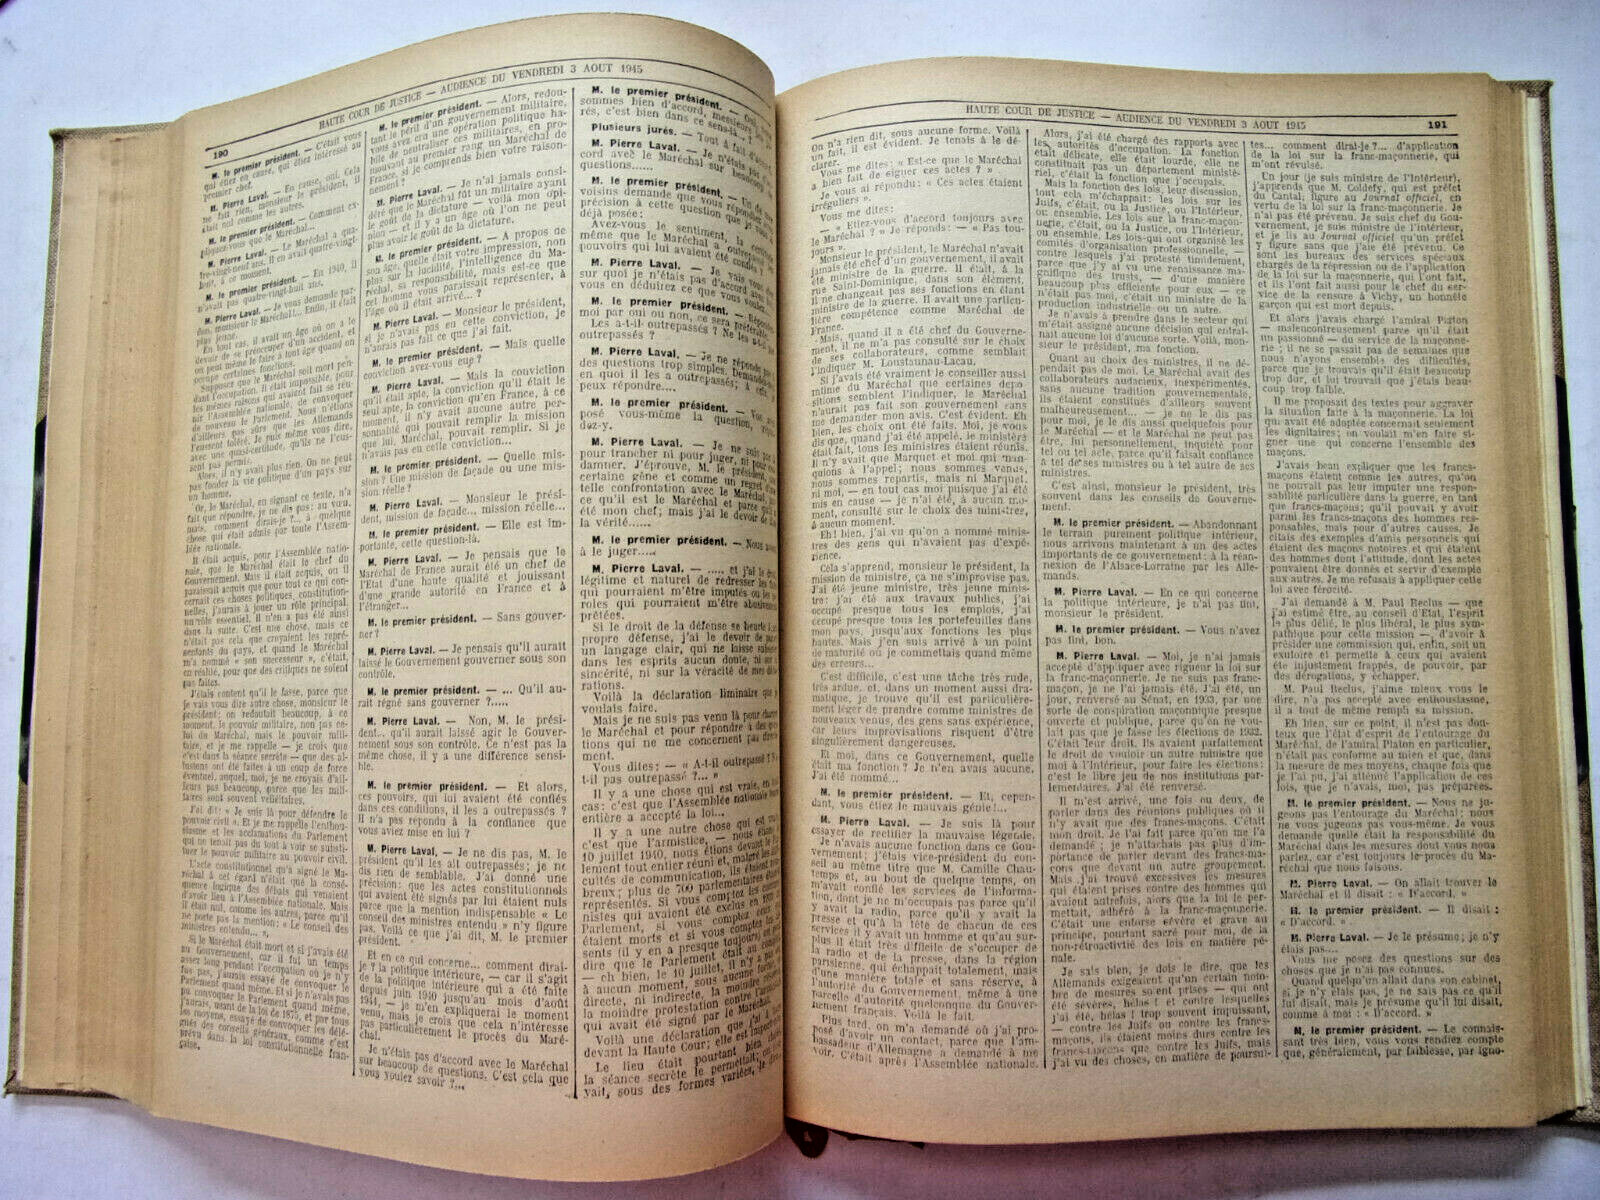 HAUTE COUR DE JUSTICE — AUDIENCE DU VENDREDI 3 AOUT 1945
190
M. le premier président. — C'était vous
qui étiez en cause, qui étiez intéressé au
premier chef.
M. Pierre Laval. — En cause, oui. Cela
ne fait rien, monsieur le président, il
était nul comme les autres.
M. le premier président. — Comment ex-
pliquez-vous que le Maréchal...
M. Pierre Laval. — Le Maréchal a qua-
tre-vingt-neuf ans. Il en avait quatre-vingt-
M. le premier président. — En 1940, il
avait quatre-vingt-huit ans.
M. Pierre Laval. — Je vous demande par-
don, monsieur le Maréchal... Enfin, il était
plus jeune.
En tout cas, il avait un âge où on a le
devoir de se préoccuper d'un accident, et
on peut même le faire à tout âge quand on
occupe certaines fonctions.
Supposez que le Maréchal soit mort pen-
dant l'occupation. Il était impossible, pour
les mêmes raisons qui avaient fait se réu-
nir l'Assemblée nationale, de convoquer
de nouveau le Parlement. Nous n'étions
d'ailleurs pas sûrs que les Allemands
l'eussent toléré. Je puis même vous dire,
avec une quasi-certitude, qu'ils ne l'eus-
sent pas permis.
Alors, il n'y avait plus rien. On ne peut
pas fonder la vie politique d'un pays sur
un homme.
Or, le Maréchal, en signant ce texte, n'a
fait que répondre, je ne dis pas : au vœu,
mais, comment dirais-je ?... à quelque
chose qui était admis par toute l'Assem-
blée nationale.
Il était acquis, pour l'Assemblée natio-
nale, que le Maréchal était le chef du
Gouvernement. Mais il était acquis, ou il
paraissait acquis que pour tout ce qui con-
cernait ces choses politiques, constitution-
nelles, j'aurais à jouer un rôle principal,
un rôle essentiel. Il n'en a pas été ainsi
dans la suite. C'est une chose, mais ce
n'était pas cela que croyaient les repré-
sentants du pays, et quand le Maréchal
m'a nommé « son successeur », c'était,
en réalité, pour que des critiques ne soient
pas faites.
J'étais content qu'il le fasse, parce que
je vais vous dire autre chose, monsieur le
président : on redoutait beaucoup, à ce
moment, le pouvoir militaire, non pas ce-
lui du Maréchal, mais le pouvoir mili-
taire, et je me rappelle — je crois que
c'est dans la séance secrète — que des al-
lusions ont été faites à un coup de force
éventuel, auquel, moi, je ne croyais d'ail-
leurs pas beaucoup, parce que les mili-
taires sont souvent velléitaires.
J'ai dit : « Je suis là pour défendre le
pouvoir civil ». Et je me rappelle l'enthou-
siasme et les acclamations du Parlement
qui ne tenait pas du tout à voir se substi-
tuer le pouvoir militaire au pouvoir civil.
L'acte constitutionnel qu'a signé le Ma-
réchal à cet égard n'était que la consé-
quence logique des débats qui venaient
d'avoir lieu à l'Assemblée nationale. Mais
il était nul, comme les autres, parce qu'il
ne porte pas la mention : « Le conseil des
ministres entendu... »,
Si le Maréchal était mort et si j'avais été
au Gouvernement, car il fut un temps
assez long pendant l'occupation où je n'y
fus pas, j'aurais essayé de convoquer le
Parlement quand même. Et si je n'avais pas
pu convoquer le Parlement quand même,
j'aurais, usant de la loi de 1875, et par tous
les moyens, essayé de convoquer les délé-
gués des conseils généraux, comme c'est
prévu dans la loi constitutionnelle fran-
çaise.
M. le premier président. — Alors, redou-
tant le péril d'un gouvernement militaire,
vous avez cru à une opération politique ha-
bile de neutraliser ces militaires, en pro-
mouvant au premier rang un Maréchal de
France, si je comprends bien votre raison-
nement ?
M. Pierre Laval. — Je n'ai jamais consi-
déré que le Maréchal fût un militaire ayant
le goût de la dictature — voilà mon opi-
nion — et il y a un âge où l'on ne peut
plus avoir le goût de la dictature.
M. le premier président. — A propos de
son âge, quelle était votre impression, non
plus sur la lucidité, l'intelligence du Ma-
réchal, sa responsabilité, mais est-ce que
cet homme vous paraissait représenter, à
l'âge où il était arrivé... ?
M. Pierre Laval. — Monsieur le président,
si je n'avais pas eu cette conviction, je
n'aurais pas fait ce que j'ai fait.
M. le premier président. — Mais quelle
conviction avez-vous eue ?
M. Pierre Laval. — Mais la conviction
qu'il était apte, la conviction qu'il était le
seul apte, la conviction qu'en France, à ce
moment, il n'y avait aucune autre per-
sonnalité qui pouvait remplir la mission
que lui, Maréchal, pouvait remplir. Si je
n'avais pas eu cette conviction...
M. le premier président. — Quelle mis-
sion ? Une mission de façade ou une mis-
sion réelle ?
M. Pierre Laval. — Monsieur le prési-
dent, mission de façade... mission réelle...
M. le premier président. — Elle est im-
portante, cette question-là.
M. Pierre Laval. — Je pensais que le
Maréchal de France aurait été un chef de
l'Etat d'une haute qualité et jouissant
d'une grande autorité en France et à
l'étranger...
M. le premier président. — Sans gouver-
ner ?
M. Pierre Laval. — Je pensais qu'il aurait
laissé le Gouvernement gouverner sous son
contrôle.
M. le premier président. — ... Qu'il au-
rait régné sans gouverner ?.....
M. Pierre Laval. — Non, M. le prési-
dent... qu'il aurait laissé agir le Gouver-
nement sous son contrôle. Ce n'est pas la
même chose, il y a une différence sensi-
ble.
M. le premier président. — Et alors,
ces pouvoirs, qui lui avaient été confiés
dans ces conditions, il les a outrepassés ?
Il n'a pas répondu à la confiance que
vous aviez mise en lui ?
M. Pierre Laval. — Je ne dis pas, M. le
président qu'il les ait outrepassés ; je ne
dis rien de semblable. J'ai donné une
précision : que les actes constitutionnels
qui avaient été signés par lui étaient nuls
parce que la mention indispensable « Le
conseil des ministres entendu » n'y figure
pas. Voilà ce que j'ai dit, M. le premier
président.
Et en ce qui concerne... comment dirai-
je ? la politique intérieure, — car il s'agit
de la politique intérieure qui a été faite
depuis juin 1940 jusqu'au mois d'août
1944, — je n'en expliquerai le moment
venu, mais je crois que cela n'intéresse
pas particulièrement le procès du Maré-
chal.
Je n'étais pas d'accord avec le Maréchal
sur beaucoup de questions. C'est cela que
vous voulez savoir ?...
M. le premier président. — Oui, nous
sommes bien d'accord, messieurs les ju-
rés, c'est bien dans ce sens-là ?
Plusieurs jurés. — Tout à fait d'accord.
M. Pierre Laval. — Je n'étais pas d'ac-
cord avec le Maréchal sur beaucoup de
questions......
M. le premier président. — Un de mes
voisins demande que vous répondiez avec
précision à cette question que je vous ai
déjà posée :
Avez-vous le sentiment, la certitude
même que le Maréchal a outrepassé les
pouvoirs qui lui avaient été confiés ?
M. Pierre Laval. — Je vais vous dire
sur quoi je n'étais pas d'accord avec lui,
vous en déduirez ce que vous voudrez.
M. le premier président. — Répondez-
moi par oui ou non, ce sera préférable.
Les a-t-il outrepassés ? Ne les a-t-il pas
outrepassés ?
M. Pierre Laval. — Je ne réponds pas à
des questions trop simples. Demandez-moi
en quoi il les a outrepassés ; à cela je
peux répondre....
M. le premier président. — Vous avez
posé vous-même la question, répon-
dez-y.
M. Pierre Laval. — Je ne suis pas là
pour trancher ni pour juger, ni pour con-
damner. J'éprouve, M. le président, une
certaine gêne et comme un regret d'une
telle confrontation avec le Maréchal, parce
qu'il est le Maréchal et parce qu'il a
été mon chef ; mais j'ai le devoir de dire
la vérité......
M. le premier président. — Nous avons
à le juger.....
M. Pierre Laval. — ..... et j'ai le droit
légitime et naturel de redresser les faits
qui pourraient m'être imputés ou les pa-
roles qui pourraient m'être abusivement
prêtées.
Si le droit de la défense se heurte à ma
propre défense, j'ai le devoir de parler
un langage clair, qui ne laisse subsister
dans les esprits aucun doute, ni sur ma
sincérité, ni sur la véracité de mes décla-
rations.
Voilà la déclaration liminaire que je
voulais faire.
Mais je ne suis pas venu là pour charger
le Maréchal et pour répondre à des ques-
tions qui ne me concernent pas directe-
Vous dites : — « A-t-il outrepassé ? N'a-
t-il pas outrepassé ?... »
Il y a une chose qui est vraie, en tout
cas : c'est que l'Assemblée nationale tout
entière a accepté la loi...
Il y a une autre chose qui est vraie,
c'est que l'armistice, — nous étions le
10 juillet 1940, nous étions devant le Par-
lement tout entier réuni et, malgré les diffi-
cultés de communication, ils étaient nom-
breux ; plus de 700 parlementaires étaient
représentés. Si vous comptez les commu-
nistes qui avaient été exclus en 1939 du
Parlement, si vous comptez ceux qui
étaient morts et si vous comptez les ab-
sents (il y en a presque toujours) on peut
dire que le Parlement était au complet
— eh bien, le 10 juillet, il n'y a pas eu
à aucun moment, sous aucune forme,
directe, ni indirecte, la moindre réserve,
la moindre protestation contre l'armistice
qui avait été signé par le Maréchal.
Voilà une déclaration que j'ai à faire
devant la Haute Cour ; elle est importante.
Le lieu était pourtant bien choisi,
la séance secrète le permettait ; on pou-
vait, sous des formes variées, le dire.
HAUTE COUR DE JUSTICE — AUDIENCE DU VENDREDI 3 AOUT 1945
191
On n'a rien dit, sous aucune forme. Voilà
un fait, il est évident. Je tenais à le dé-
clarer.
Vous me dites : « Est-ce que le Maréchal
a bien fait de signer ces actes ? »
Je vous ai répondu : « Ces actes étaient
irréguliers ».
Vous me dites :
— « Etiez-vous d'accord toujours avec
le Maréchal ? » Je réponds : — « Pas tou-
jours ».
Monsieur le président, le Maréchal n'avait
jamais été chef d'un gouvernement, il avait
été ministre de la guerre. Il était, à la
rue Saint-Dominique, dans son élément,
il ne changeait pas ses fonctions en étant
ministre de la guerre. Il avait une particu-
lière compétence comme Maréchal de
France.
Mais, quand il a été chef du Gouverne-
ment, il ne m'a pas consulté sur le choix
de ses collaborateurs, comme semblait
l'indiquer M. Loustaunau-Lacau.
Si j'avais été vraiment le conseiller aussi
intime du Maréchal que certaines dépo-
sitions semblent l'indiquer, le Maréchal
n'aurait pas fait son gouvernement sans
me demander mon avis. C'est évident. Eh
bien, les choix ont été faits. Moi, je vous
dis que, quand j'ai été appelé, le ministère
était fait, tous les ministres étaient réunis.
Il n'y avait que Marquet et moi qui man-
quions à l'appel ; nous sommes venus,
nous sommes repartis, mais ni Marquet,
ni moi, — en tout cas moi puisque j'ai été
mis en cause — je n'ai été, à aucun mo-
ment, consulté sur le choix des ministres,
à aucun moment.
Eh ! bien, j'ai vu qu'on a nommé minis-
tres des gens qui n'avaient pas d'expé-
rience.
Cela s'apprend, monsieur le président, la
mission de ministre, ça ne s'improvise pas.
J'ai été jeune ministre, très jeune minis-
tre : j'ai été aux travaux publics, j'ai
occupé presque tous les emplois, j'ai
occupé presque tous les portefeuilles dans
mon pays, jusqu'aux fonctions les plus
hautes. Mais j'en suis arrivé à un point
de maturité où je commettais quand même
des erreurs...
C'est difficile, c'est une tâche très rude,
très ardue, et, dans un moment aussi dra-
matique, je trouve qu'il est particulière-
ment léger de prendre comme ministres de
nouveaux venus, des gens sans expérience,
car leurs improvisations risquent d'être
singulièrement dangereuses.
Et moi, dans ce Gouvernement, quelle
était ma fonction ? Je n'en avais aucune.
J'ai été nommé...
M. le premier président. — Et, cepen-
dant, vous étiez le mauvais génie !...
M. Pierre Laval. — Je suis là pour
essayer de rectifier la mauvaise légende.
Je n'avais aucune fonction dans ce Gou-
vernement ; j'étais vice-président du con-
seil au même titre que M. Camille Chau-
temps et, au bout de quelque temps, on
m'avait confié les services de l'informa-
tion, dont je ne m'occupais pas parce qu'il
y avait la radio, parce qu'il y avait la
presse et qu'à la tête de chacun de ces
services il y avait un homme et qu'au sur-
plus il était très difficile de s'occuper de
la radio et de la presse, dans la région
parisienne, qui échappait totalement, mais
d'une manière totale et sans réserve, à
l'autorité du Gouvernement, même à une
parcelle d'autorité quelconque du Gouver-
nement français. Voilà le fait.
Plus tard, on m'a demandé où j'ai pro-
posé d'avoir un contact, parce que l'am-
bassadeur d'Allemagne a demandé à me
voir. C'était après l'Assemblée nationale.
Alors, j'ai été chargé des rapports avec
les autorités d'occupation. La fonction
était délicate, elle était lourde, elle ne
constituait pas un département ministé-
riel, c'était la fonction que j'occupais.
Mais la fonction des lois, leur discussion,
tout cela m'échappait : les lois sur les
Juifs, c'était, ou la Justice, ou l'Intérieur,
ou ensemble. Les lois sur la franc-maçon-
nerie, c'était, ou la Justice, ou l'Intérieur,
ou ensemble. Les lois qui ont organisé les
comités d'organisation professionnelle, —
contre lesquels j'ai protesté timidement,
parce que j'y ai vu une renaissance ma-
gnifique des trusts, — d'une manière
beaucoup plus efficiente pour eux — ce
n'était pas moi, c'était un ministre de la
production industrielle ou un autre.
Je n'avais à prendre dans le secteur qui
m'était assigné aucune décision qui entraî-
nait aucune loi d'aucune sorte. Voilà, mon-
sieur le président, ma fonction.
Quant au choix des ministres, il ne dé-
pendait pas de moi. Le Maréchal avait des
collaborateurs audacieux, inexpérimentés,
sans aucune tradition gouvernementale,
ils étaient constitués d'ailleurs souvent
malheureusement... — je ne le dis pas
pour moi, je le dis aussi quelquefois pour
le Maréchal — et le Maréchal ne peut pas
être, lui personnellement, inquiété pour
tel ou tel acte, parce qu'il faisait confiance
à tel de ses ministres ou à tel autre de ses
ministres.
C'est ainsi, monsieur le président, très
souvent dans les conseils de Gouverne-
ment.
M. le premier président. — Abandonnant
le terrain purement politique intérieur,
nous arrivons maintenant à un des actes
importants de ce gouvernement : à la réan-
nexion de l'Alsace-Lorraine par les Alle-
mands.
M. Pierre Laval. — En ce qui concerne
la politique intérieure, je n'ai pas fini,
monsieur le président.
M. le premier président. — Vous n'avez
pas fini, bon.
M. Pierre Laval. — Moi, je n'ai jamais
accepté d'appliquer avec rigueur la loi sur
la franc-maçonnerie. Je ne suis pas franc-
maçon, je ne l'ai jamais été. J'ai été, un
jour, renversé au Sénat, en 1933, par une
sorte de conspiration maçonnique presque
ouverte et publique, parce qu'on ne vou-
lait pas que je fasse les élections de 1932.
C'était leur droit. Ils avaient parfaitement
le droit de vouloir un autre ministre que
moi à l'Intérieur, pour faire les élections :
c'est le libre jeu de nos institutions par-
lementaires. J'ai été renversé.
Il m'est arrivé, une fois ou deux, de
parler dans des réunions publiques où il
n'y avait que des francs-maçons. C'était
mon droit. Je l'ai fait parce qu'on me l'a
demandé ; je n'attachais pas plus d'im-
portance de parler devant des francs-ma-
çons que devant un autre groupement.
Mais j'ai trouvé excessives les mesures
qui étaient prises contre des hommes qui
avaient autrefois, alors que la loi le per-
mettait, adhéré à la franc-maçonnerie.
C'était une entorse sévère et grave au
principe, pourtant sacré pour moi, de la
non-rétroactivité des lois en matière pé-
nale.
Je sais bien, je dois le dire, que les
Allemands exigeaient qu'un certain nom-
bre de mesures soient prises — qui ont
été sévères, hélas ! et contre lesquelles
j'ai été, hélas ! trop souvent impuissant,
— contre les Juifs ou contre les francs-
maçons, ils étaient moins durs contre les
francs-maçons que contre les Juifs, mais
j'ai vu des choses, en matière de poursui-
tes... comment dirai-je ?... d'application
de la loi sur la franc-maçonnerie, qui
m'ont révulsé.
Un jour (je suis ministre de l'Intérieur),
j'apprends que M. Coldefy, qui est préfet
du Cantal, figure au Journal officiel, en
vertu de la loi sur la franc-maçonnerie. Je
n'ai pas été prévenu. Je suis chef du Gou-
vernement, je suis ministre de l'intérieur,
et je lis au Journal officiel qu'un préfet
y figure sans que j'aie été prévenu. Ce
sont les bureaux des services spéciaux
chargés de la répression ou de l'application
de la loi sur la maçonnerie, qui l'ont fait,
et ils l'ont fait aussi pour le chef du ser-
vice de la censure à Vichy, un honnête
garçon qui est mort depuis.
Et alors j'avais chargé l'amiral Platon
— malencontreusement parce qu'il était
un passionné — du service de la maçonne-
rie ; il ne se passait pas de semaines que
nous n'ayons ensemble des difficultés,
parce que je trouvais qu'il était beaucoup
trop dur, et lui trouvait que j'étais beau-
coup trop faible.
Il me proposait des textes pour aggraver
la situation faite à la maçonnerie. La loi
qui avait été adoptée concernait seulement
les dignitaires ; on voulait m'en faire si-
gner une qui concerne l'ensemble des
maçons.
J'avais beau expliquer que les francs-
maçons étaient comme les autres, qu'on
ne pouvait pas leur imputer une respon-
sabilité particulière dans la guerre, en tant
que francs-maçons ; qu'il pouvait y avoir
parmi les francs-maçons des hommes res-
ponsables, mais pour d'autres causes. Je
citais des exemples d'amis personnels qui
étaient des maçons notoires et qui étaient
des hommes dont l'attitude, dont les actes
pouvaient être donnés et servir d'exemple
aux autres. Je me refusais à appliquer cette
loi avec férocité.
J'ai demandé à M. Paul Reclus — que
j'ai estimé être, au conseil d'Etat, l'esprit
le plus délié, le plus libéral, le plus sym-
pathique pour cette mission —, d'avoir à
présider une commission qui, enfin, soit un
exutoire et permette à ceux qui avaient
été injustement frappés, de pouvoir, par
des dérogations, y échapper.
M. Paul Reclus, j'aime mieux vous le
dire, n'a pas accepté avec enthousiasme,
il a tout de même rempli sa mission.
Eh bien, sur ce point, il n'est pas dou-
teux que l'état d'esprit de l'entourage du
Maréchal, de l'amiral Platon en particulier,
n'était pas conforme au mien et que, dans
la mesure de mes moyens, chaque fois que
je l'ai pu, j'ai atténué l'application de ces
lois, que je n'avais, moi, pas préparées.
M. le premier président. — Nous ne ju-
geons pas l'entourage du Maréchal ; nous
ne vous jugeons pas vous-même. Je vous
demande quelle était la responsabilité du
Maréchal dans les mesures dont vous nous
parlez, car c'est toujours le procès du Ma-
réchal que nous faisons.
M. Pierre Laval. — On allait trouver le
Maréchal et il disait : « D'accord. »
M. le premier président. — Il disait :
« D'accord. »
M. Pierre Laval. — Je le présume ; je n'y
étais pas....
Vous me posez des questions sur des
choses que je n'ai pas connues.
Quand quelqu'un allait dans son cabinet,
si je n'y étais pas, je ne sais pas ce qu'il
lui disait, mais je présume qu'il lui disait,
comme à moi : « D'accord. »
M. le premier président. — Le connais-
sant très bien, vous vous rendiez compte
que, généralement, par faiblesse, par igno-